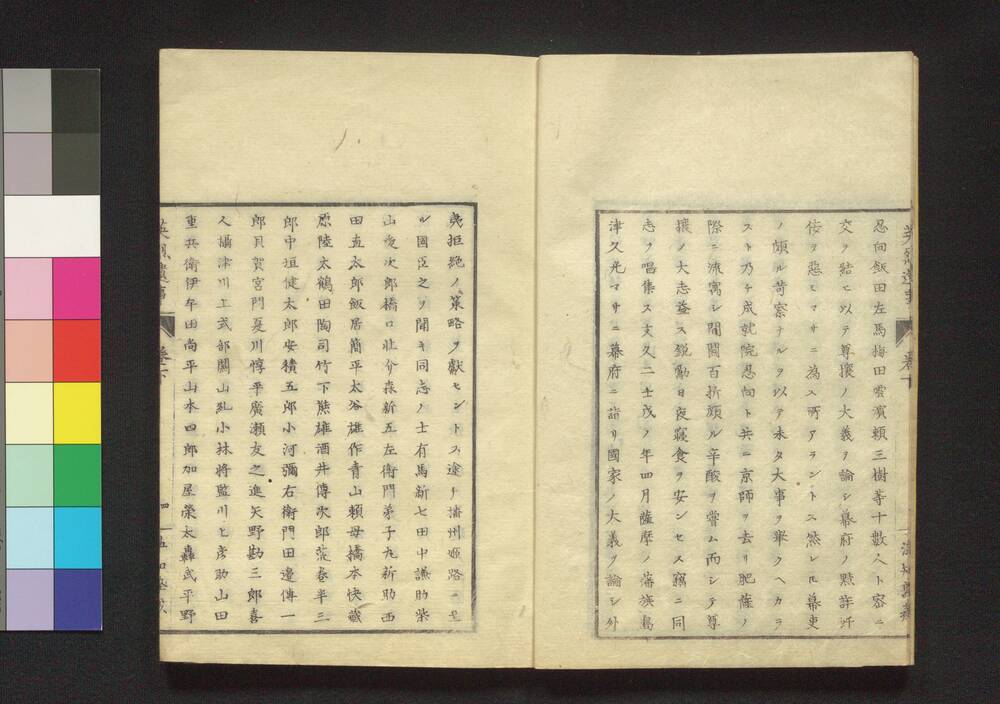 忍向飯田左馬梅田雲濱頼三樹等十數人ト容ニ
交ヲ結ヒ以テ尊攘ノ大義ヲ論シ幕府ノ黙許奸
侫ヲ惡ヒマサニ為ス所アラントス然レ𪜈幕吏
ノ頗ル苛察ナルヲ以テ未タ大事ヲ挙クヘカラ
スト乃チ成就院忍向ト共ニ京師ヲ去リ肥薩ノ
際ニ流寓シ間關百折頗ル辛酸ヲ嘗ム而シテ尊
攘ノ大志益ス鋭勵日夜寢食ヲ安ンセス竊ニ同
志ヲ唱集ス文久二壬戌ノ年四月薩摩ノ藩族島
津久光マサニ幕府ニ詣リ國家ノ大義ヲ論シ外
夷拒絶ノ策略ヲ獻セントス途リ播州姫路ニ至
ル國臣之ヲ聞キ同志ノ士有馬新七田中謙助柴
山愛次郎橋口壯介森新五左衛門弟子丸新助西
田直太郎飯居簡平太谷雄作青山頼母橋本快藏
原陸太鶴田陶司竹下熊雄酒井傳次郎荒巻半三
郎中垣健太郎安積五郎小河彌右衛門田邉傳一
郎貝賀宮門夏川惇平廣瀬友之進矢野勘三郎喜
人攝津川上式部關山糺小林將監川上彦助山田
重兵衛伊牟田尚平山本四郎加屋榮太轟武平野